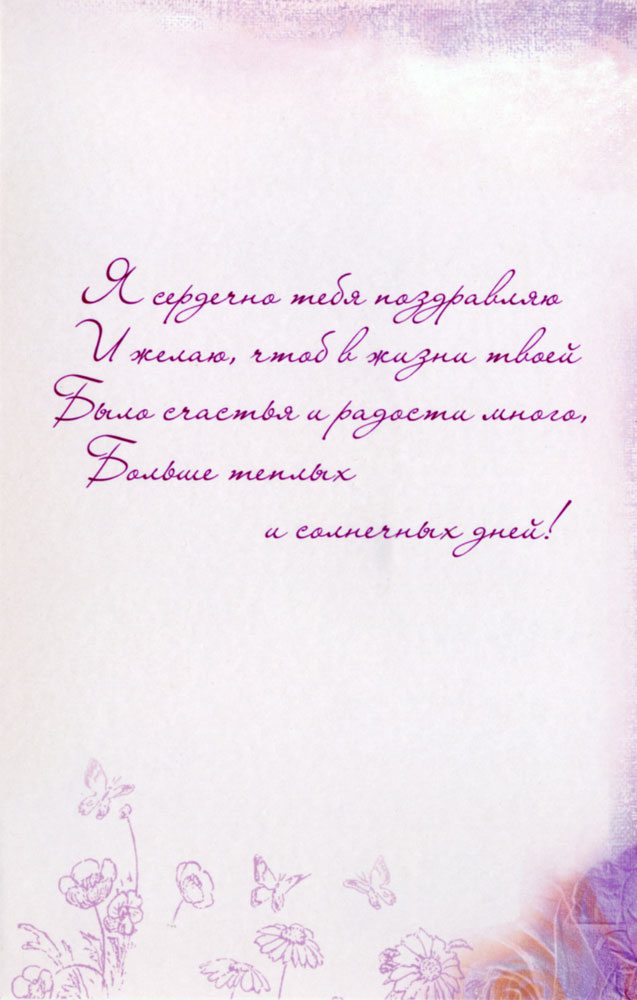 Я сердечно тебя поздравляю
И желаю, чтоб в жизни твоей
Было счастья и радости много,
Больше теплых
и солнечных дней!